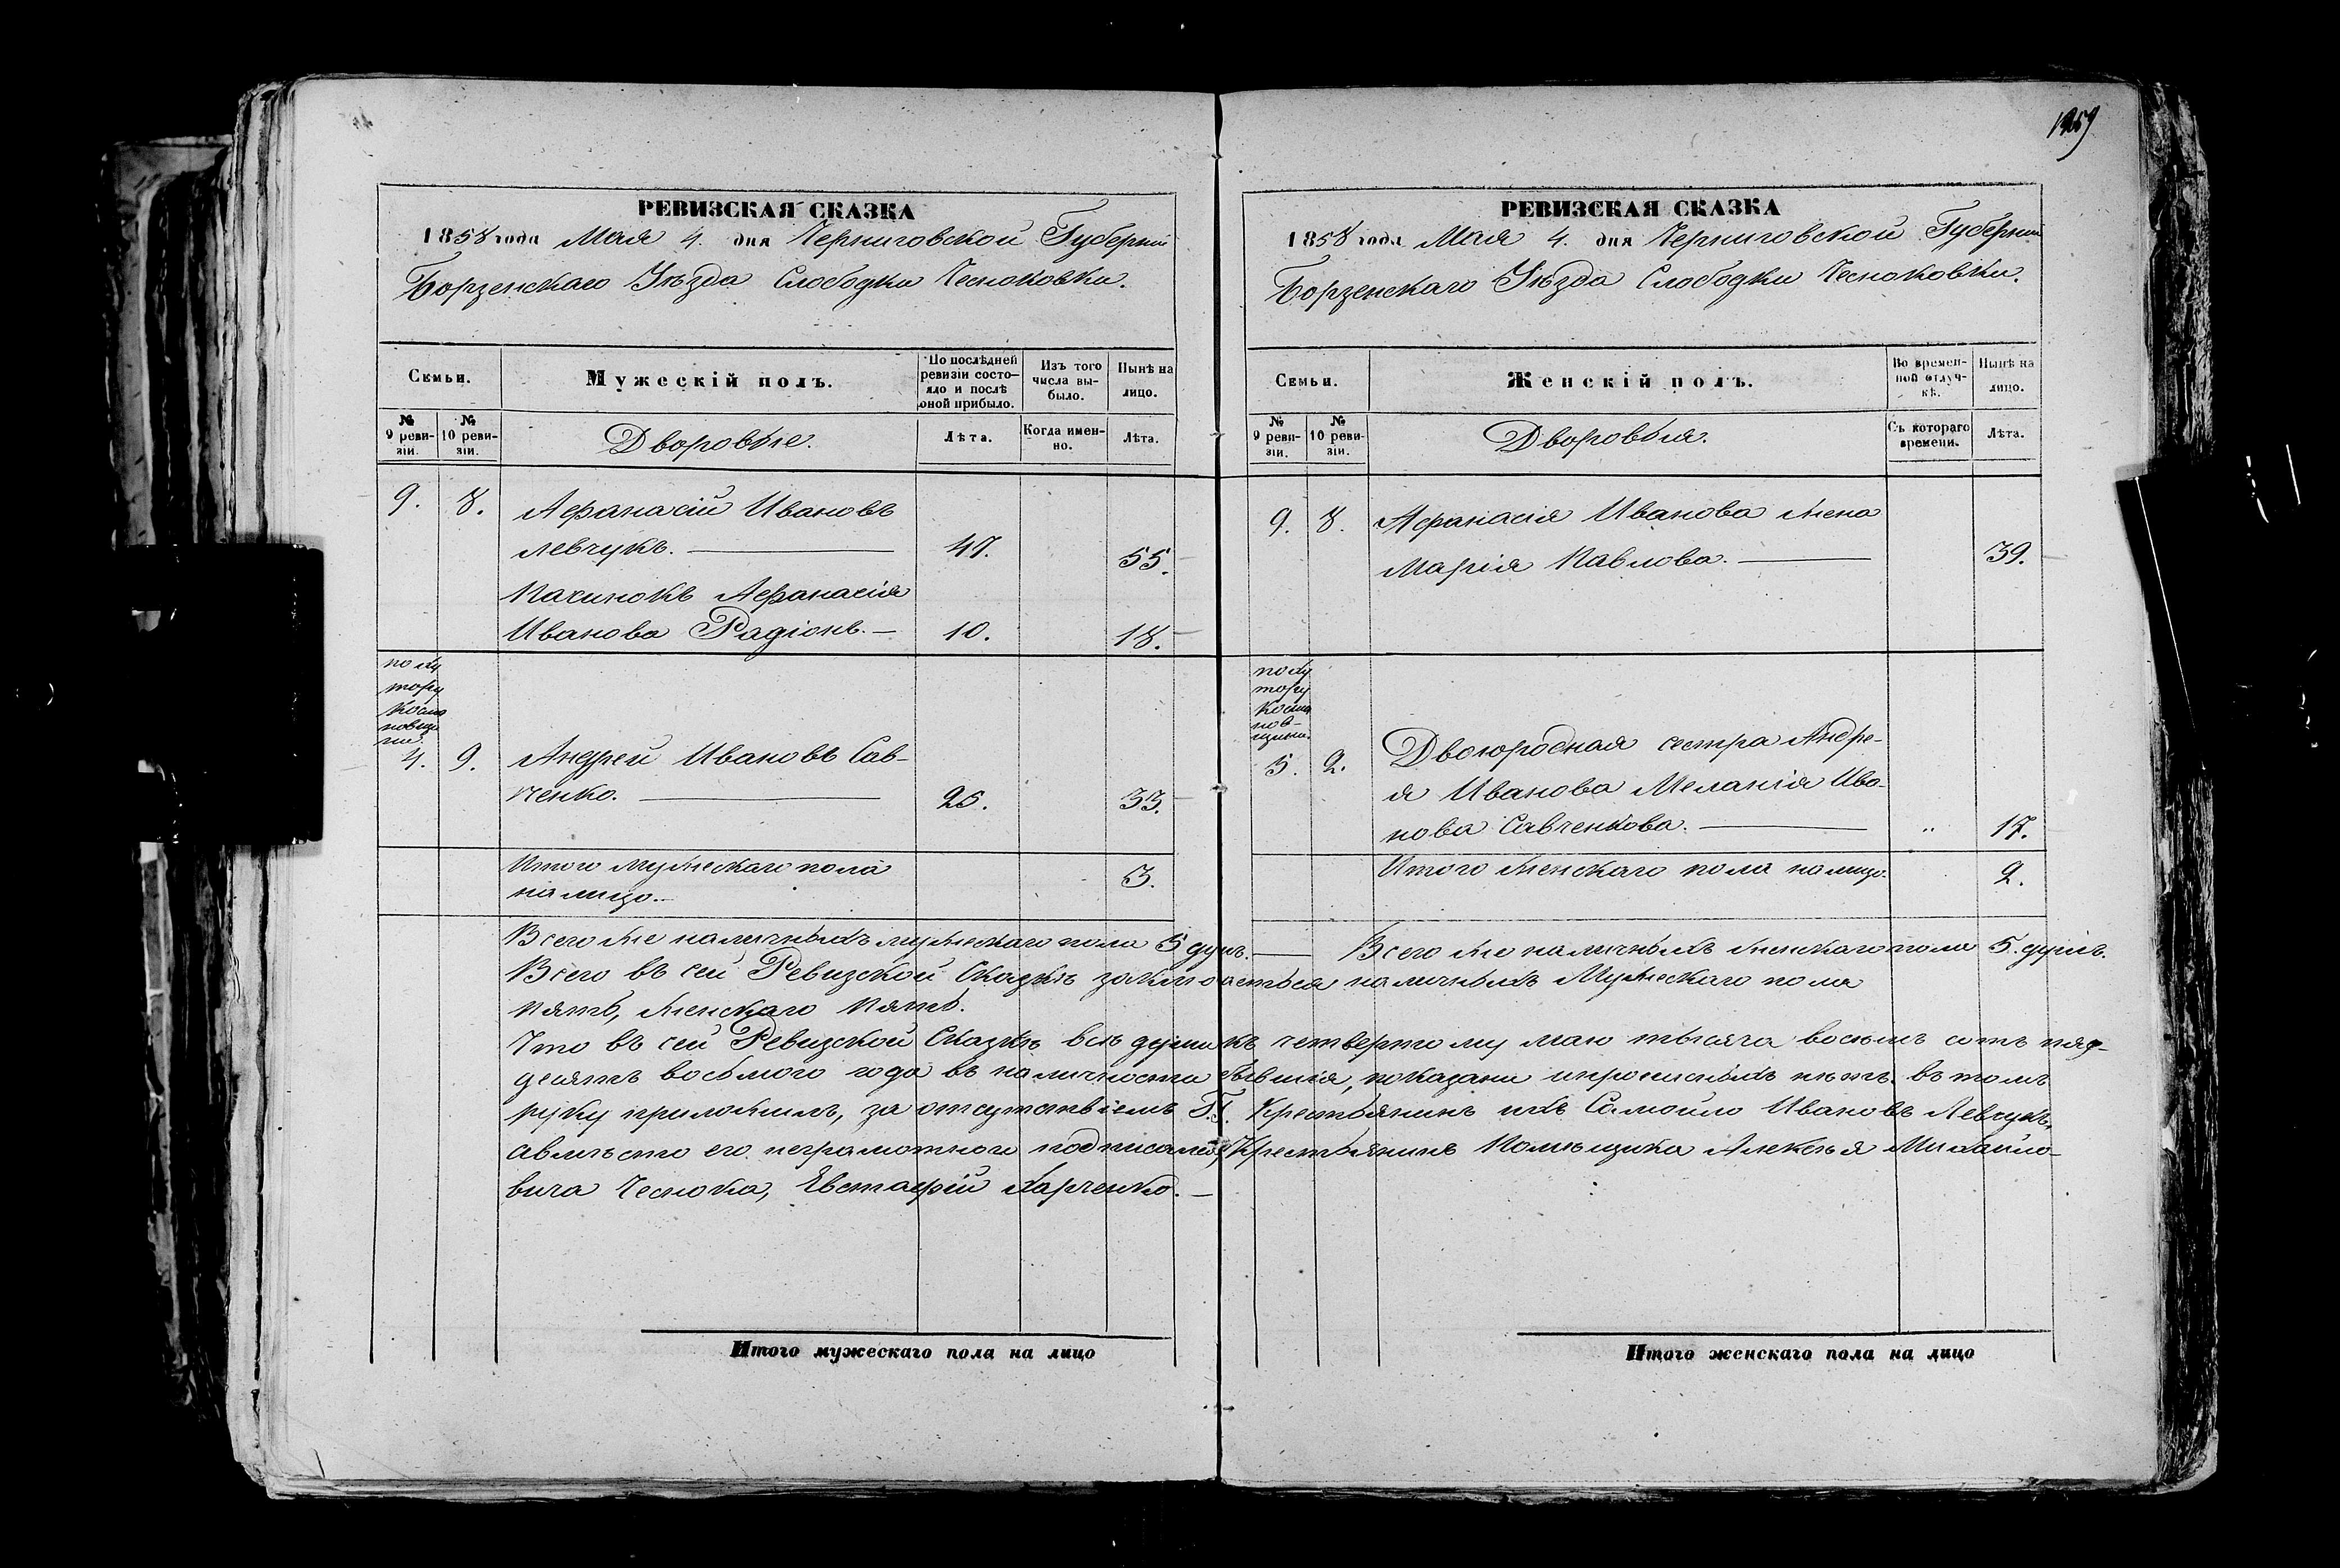 1259
РЕВИЗСКАЯ СКАЗКА
1858 года Мая 4. дня Черниговской Губерніи
Борзенскаго Уѣзда Слободки Чесноковки.
Семьи.
Мужескій полъ.
По послѣдней ревизіи состояло и послѣ оной прибыло.
Изъ того числа выбыло.
Нынѣ на лицо.
№ 9 ревизіи.
№ 10 ревизіи.
Дворовые.
Лѣта.
Когда именно.
Лѣта.
9. 8. Афанасій Ивановъ
Левчукъ. 47. 55.
Пасинокъ Афанасія
Иванова Радіонъ. 10. 18.
по ху
тору
Косто
новщи
ни.
4. 9. Андрей Ивановъ Сав-
ченко. 25. 33.
Итого мужескаго пола
на лицо. 3.
РЕВИЗСКАЯ СКАЗКА
1858 года Мая 4. дня Черниговской Губерніи
Борзенскаго Уѣзда Слободки Чесноковки.
Семьи.
Женскій полъ.
Во временной отлучкѣ.
Нынѣ на лицо.
№ 9 ревизіи.
№ 10 ревизіи.
Дворовыя.
Съ котораго времени.
Лѣта.
9. 8. Афанасія Иванова жена
Марія Павлова. 39.
по ху
тору
нов-
щини.
5. 9. Двоюродная сестра Андре-
я Иванова Меланія Ива-
нова Савченкова. „ 17.
Итого женскаго пола на лицо. 2.
Всего же наличныхъ мужескаго пола 5 душъ. — Всего же наличныхъ женскаго пола 5. душъ.
Всего въ сей Ревизской Сказкѣ заключается наличныхъ Мужескаго пола
пять, женскаго пять.
Что въ сей Ревизской Сказкѣ всѣ души къ четвертому маю тысяча восемь сотъ пяд-
десятъ восьмого года въ наличности бывшія, показани и прописныхъ нѣтъ. въ томъ
руку приложилъ, за отсутствіемъ Г. Крестьянинъ ихъ Самойло Ивановъ Левчукъ,
а вмѣсто его неграмотнаго подписался, Крестьянинъ Помѣщика Алексѣя Михайло-
вича Чеснока, Евстафій Харченко. —
Итого мужескаго пола на лицо
Итого женскаго пола на лицо